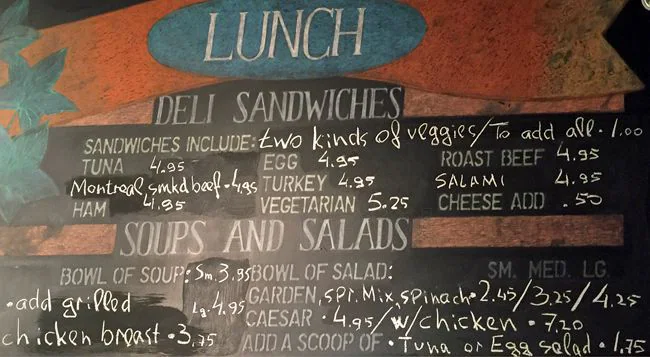 LUNCH
DELI SANDWICHES
SANDWICHES INCLUDE: two kinds of veggies/To add all · 1.00
TUNA 4.95 EGG 4.95 ROAST BEEF 4.95
Montreal smkd beef · 4.95 TURKEY 4.95 SALAMI 4.95
HAM 4.95 VEGETARIAN 5.25 CHEESE ADD .50
SOUPS AND SALADS
BOWL OF SOUP: Sm. 3.95 BOWL OF SALAD: SM. MED. LG.
· add grilled Lg. 4.95 GARDEN, spr. Mix, spinach · 2.45/3.25/4.25
chicken breast · 3.75 CAESAR · 4.95/w/chicken · 7.20
ADD A SCOOP OF · Tuna or Egg salad · 1.75